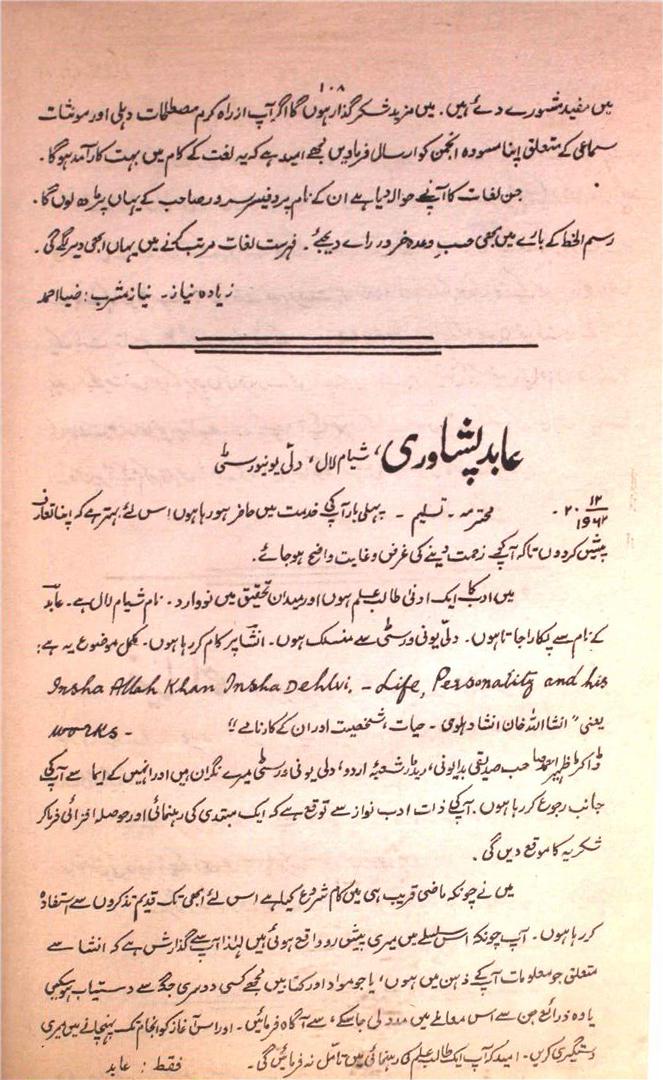 ۱۰۸
میں مفید مشورے دئے ہیں۔ میں مزید شکر گذار ہوں گا اگر آپ از راہ کرم مصطلحات دہلی اور مونثات
سماعی کے متعلق اپنا مسودہ انجمن کو ارسال فرما دیں مجھے امید ہے کہ یہ لغت کے کام میں بہت کار آمد ہوگا۔
جن لغات کا آپنے حوالہ دیا ہے ان کے نام پروفیسر سرور صاحب کے یہاں پڑھ لوں گا۔
رسم الخط کے بارے میں بھی حسب وعدہ ضرور راے دیجئے۔ فہرست لغات مرتب کرنے میں یہاں ابھی دیر لگے گی۔
زیادہ نیاز۔ نیاز مشرب: ضیا احمد
عابد پشاوری، شیام لال، دلّی یونیورسٹی
۲۰ ۱۲ ۱۹۶۲ - محترمہ۔ تسلیم۔ پہلی بار آپ کی خدمت میں حاضر ہو رہا ہوں اس لئے بہتر ہے کہ اپنا تعارف
پیش کردوں تاکہ آپکو زحمت دینے کی غرض و غایت واضح ہو جائے۔
میں ادب کا ایک ادنیٰ طالب علم ہوں اور میدان تحقیق میں نووارد۔ نام شیام لال ہے۔ عابد
کے نام سے پکارا جاتا ہوں۔ دلّی یونی ورسٹی سے منسلک ہوں۔ انشا پر کام کر رہا ہوں۔ مکمل موضوع یہ ہے:
Insha Allah Khan Insha Dehlvi. - Life, Personality and his
works - یعنی "انشا اللہ خان انشا دہلوی۔ حیات، شخصیت اور ان کے کارنامے"
ڈاکٹر ظہیر احمد صاحب صدیقی بدایونی، ریڈر شعبۂ اردو، دلی یونی ورسٹی میرے نگران ہیں اور انہیں کے ایما سے آپ کی
جانب رجوع کر رہا ہوں۔ آپ کی ذات ادب نواز سے توقع ہے کہ ایک مبتدی کی رہنمائی اور حوصلہ افزائی فرما کر
شکریہ کا موقع دیں گی۔
میں نے چونکہ ماضی قریب ہی میں کام شروع کیا ہے اس لئے ابھی تک قدیم تذکروں سے استفادہ
کر رہا ہوں۔ آپ چونکہ اس سلسلے میں میری پیش رو واقع ہوئی ہیں لہٰذا آپ سے گذارش ہے کہ انشا سے
متعلق جو معلومات آپکے ذہن میں ہوں، یا جو مواد اور کتابیں مجھے کسی دوسری جگہ سے دستیاب ہو سکیں
یا وہ ذرائع جن سے اس معاملے میں مدد لی جا سکے، سے آگاہ فرمائیں۔ اور اس آغاز کو انجام تک پہنچانے میں میری
دستگیری کریں۔ امید کہ آپ ایک طالب علم کی رہنمائی میں تامل نہ فرمائیں گی۔ فقط: عابد